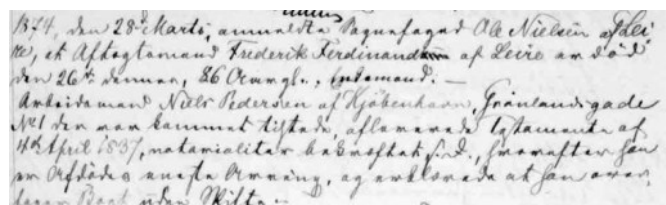 1874, den 28de Marts, anmeldte Sognefoged Ole Nielsen af Lei
re, at Aftægtsmand Frederik Ferdinand af Leire er død
den 26de dennes, 86 Aar gl., Enkemand. —
Arbeidsmand Niels Pedersen af Kjöbenhavn, Grönlandsgade
No 1 der var kommet tilstede, afleverede Testamente af
4de April 1837, notarialiter bekræftet s. D., hvorefter han
er Afdødes eneste Arving, og erklærede at han over
tager Boet uden Skifte —